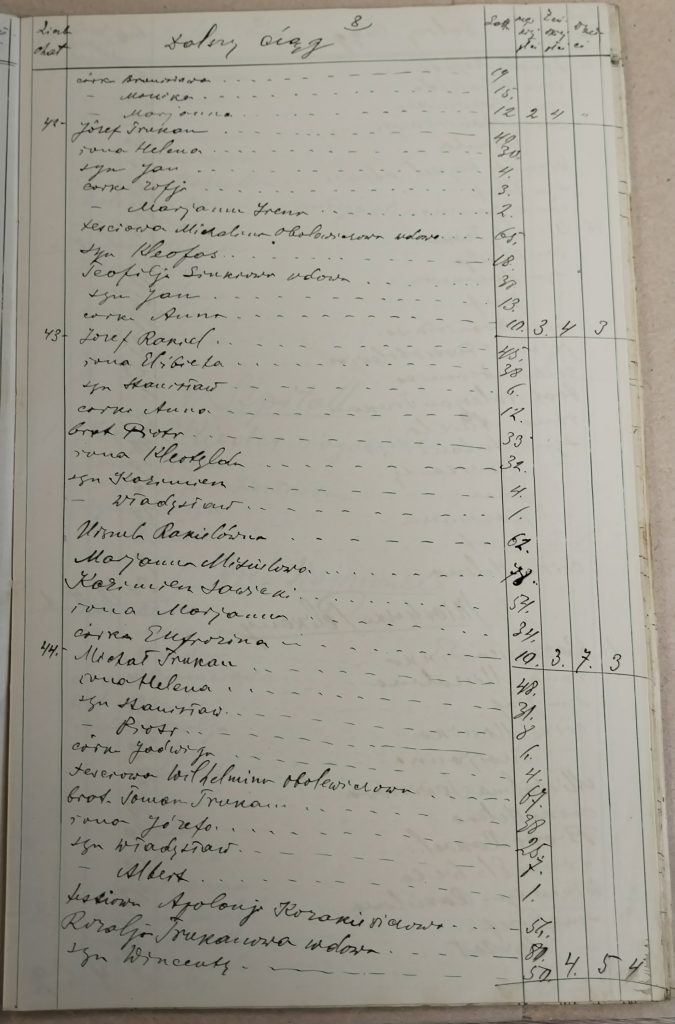 8
Dalszy ciąg
córka Bronisława 19.
- Monika 15.
- Marjanna 12 2 4 "
42- Józef Trukan 40
żona Helena 30.
syn Jan 4.
córka Zofja 3.
- Marjanna Irena 2.
teściowa Michalina Obolewiczowa wdowa 65.
syn Kleofas 18.
Teofilja wdowa 30
syn Jan 13.
córka Anna 10. 3. 4 3
43- Józef Rakiel 45.
żona Elżbieta 38
syn Stanisław 6.
córka Anna 12.
brat Piotr 33
żona Kleotylda 32.
syn Kazimierz 4.
- Władysław 1.
Urszula Rakielówna 62.
Marjanna 78.
Kazimierz Sawicki 54.
żona Marjanna 34.
córka Eufrozina 10. 3. 7. 3
44.- Michał Trukan 48.
żona Helena 31.
syn Stanisław 8
- Piotr 6.
córka Jadwiga 4.
teściowa Wilhelmina Obolewiczowa 67.
brat Toman Trukan 38
żona Józefa 25.
syn Władysław 7
- Albert 1.
teściowa Apolonja Kozakiewiczowa 56.
Rozalja Trukanowa wdowa 80.
syn Wincenty 50. 4. 5 4